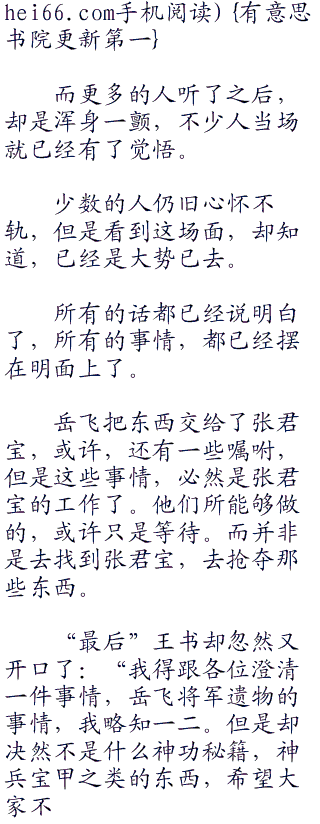 hei66.com手机阅读) {有意思
书院更新第一}
而更多的人听了之后，
却是浑身一颤，不少人当场
就已经有了觉悟。
少数的人仍旧心怀不
轨，但是看到这场面，却知
道，已经是大势已去。
所有的话都已经说明白
了，所有的事情，都已经摆
在明面上了。
岳飞把东西交给了张君
宝，或许，还有一些嘱咐，
但是这些事情，必然是张君
宝的工作了。他们所能够做
的，或许只是等待。而并非
是去找到张君宝，去抢夺那
些东西。
“最后”王书却忽然又
开口了：“我得跟各位澄清
一件事情，岳飞将军遗物的
事情，我略知一二。但是却
决然不是什么神功秘籍，神
兵宝甲之类的东西，希望大
家不